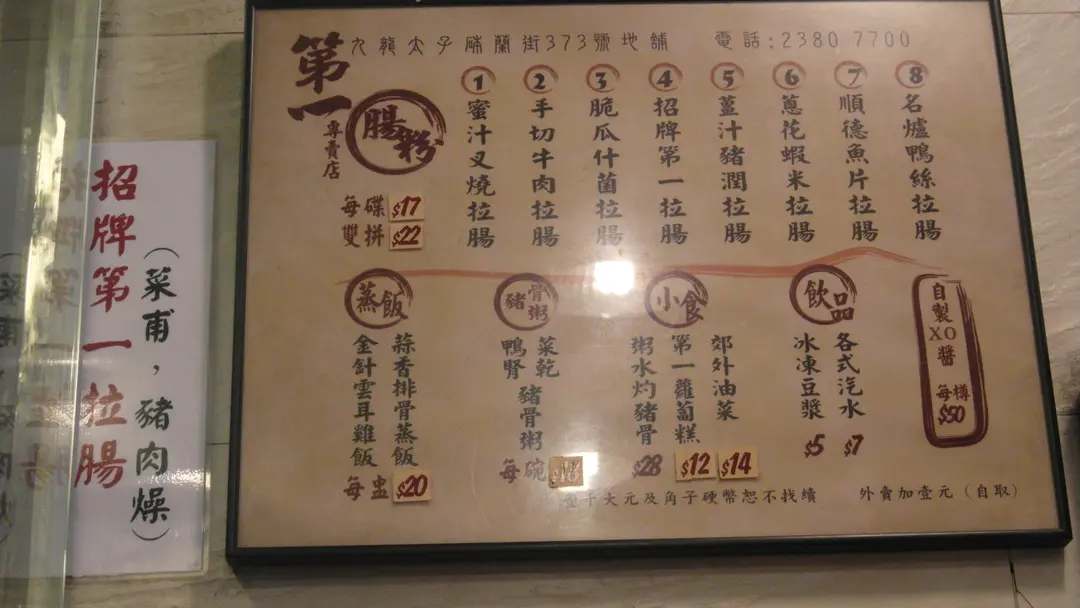 招牌第一拉腸
（菜甫，豬肉燥）
第一
腸粉
專賣店
九龍太子砵蘭街373號地舖 電話:2380 7700
1 蜜汁叉燒拉腸
2 手切牛肉拉腸
3 脆瓜什菌拉腸
4 招牌第一拉腸
5 薑汁豬潤拉腸
6 蔥花蝦米拉腸
7 順德魚片拉腸
8 名爐鴨絲拉腸
每碟 $17
雙拼 $22
蒸飯
蒜香排骨蒸飯
金針雲耳雞飯
每盅 $20
豬骨粥
菜乾豬骨粥
鴨腎
每碗
小食
郊外油菜 $14
第一蘿蔔糕 $12
粥水灼豬骨 $28
飲品
各式汽水 $7
冰凍豆漿 $5
自製XO醬
每樽 $50
大元及角子硬幣恕不找續 外賣加壹元（自取）